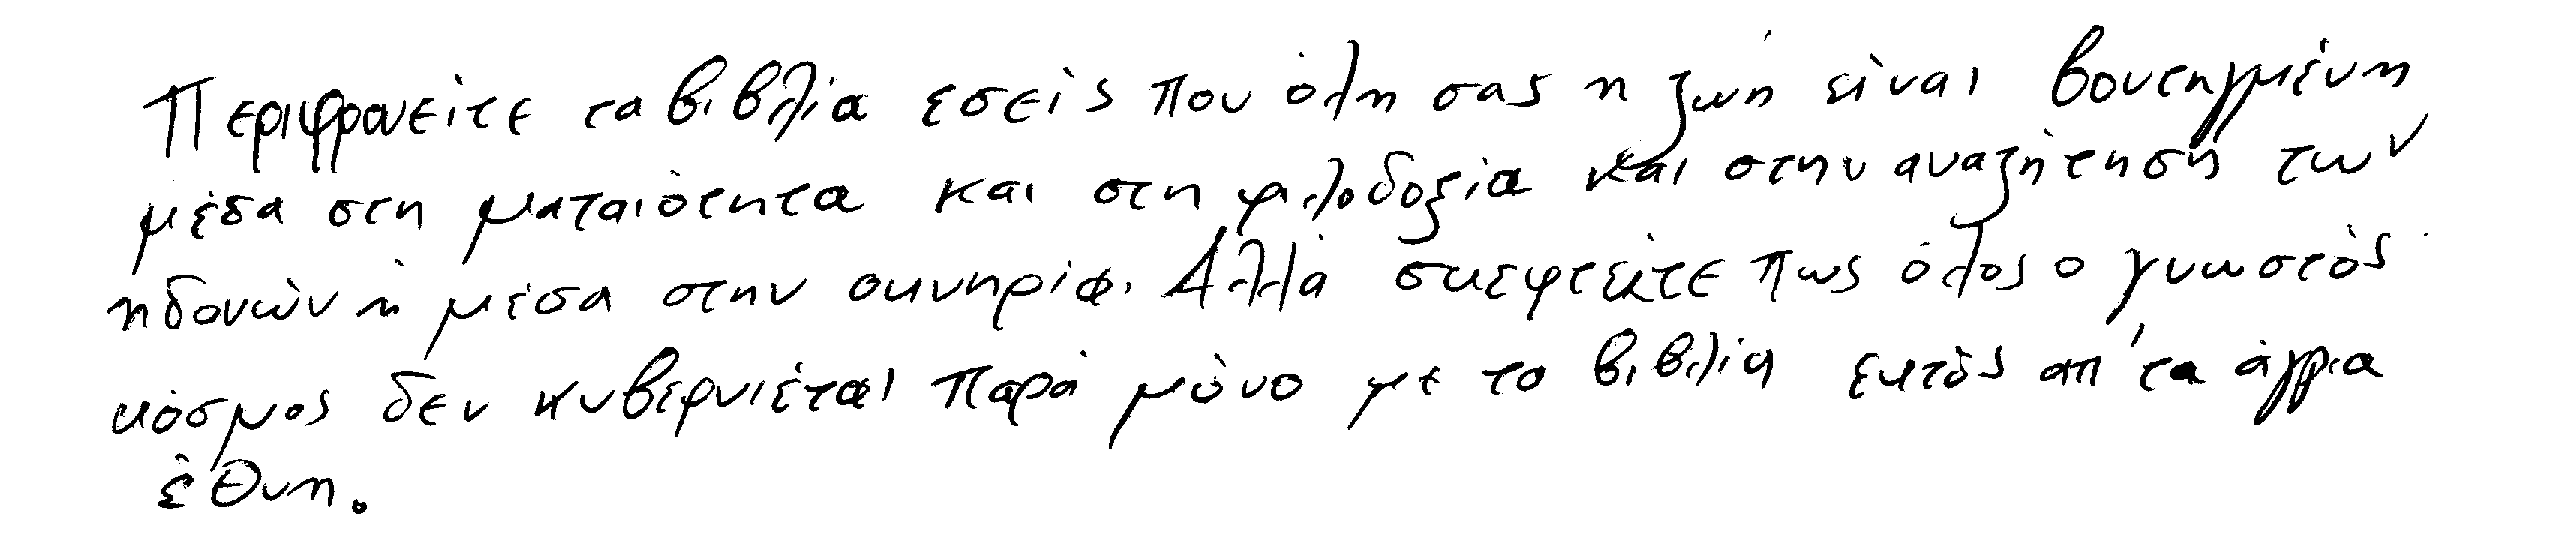 Περιφρονείτε τα βιβλία εσείς που όλη σας η ζωή είναι βουτηγμένη
μέσα στη ματαιότητα και στη φιλοδοξία και στην αναζήτηση των
ηδονών ή μέσα στην οκνηρία. Αλλά σκεφτείτε πως όλος ο γνωστός
κόσμος δεν κυβερνιέται παρά μόνο με τα βιβλία εκτός απ' τα άγρια
έθνη.